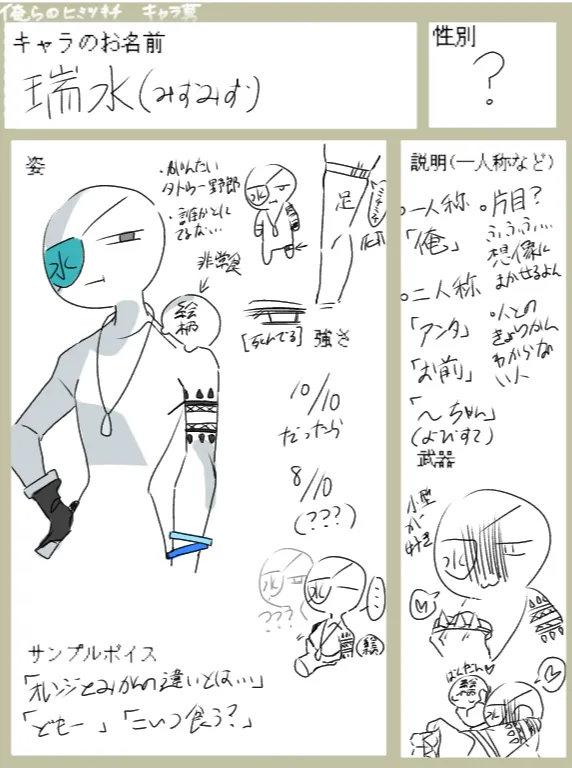 俺らのヒミツキチ キャラ募
キャラのお名前
瑞水(みずみず)
性別
?
姿
タトゥー野郎
誰かとに
てるな…
非常食
水
絵
柄
足
[死んでる]
強さ
10/10
だったら
8/10
(???)
???
サンプルボイス
「オレンジとみかんの違いとは…」
「どもー」「こいつ食う?」
説明(一人称など)
一人称
「俺」
二人称
「アンタ」
「お前」
「〜ちゃん」
(よびすて)
片目?
ふふふ…
想像に
まかせるよん
人との
きょりかん
わからな
い人
武器
小型
が
好き
水
水